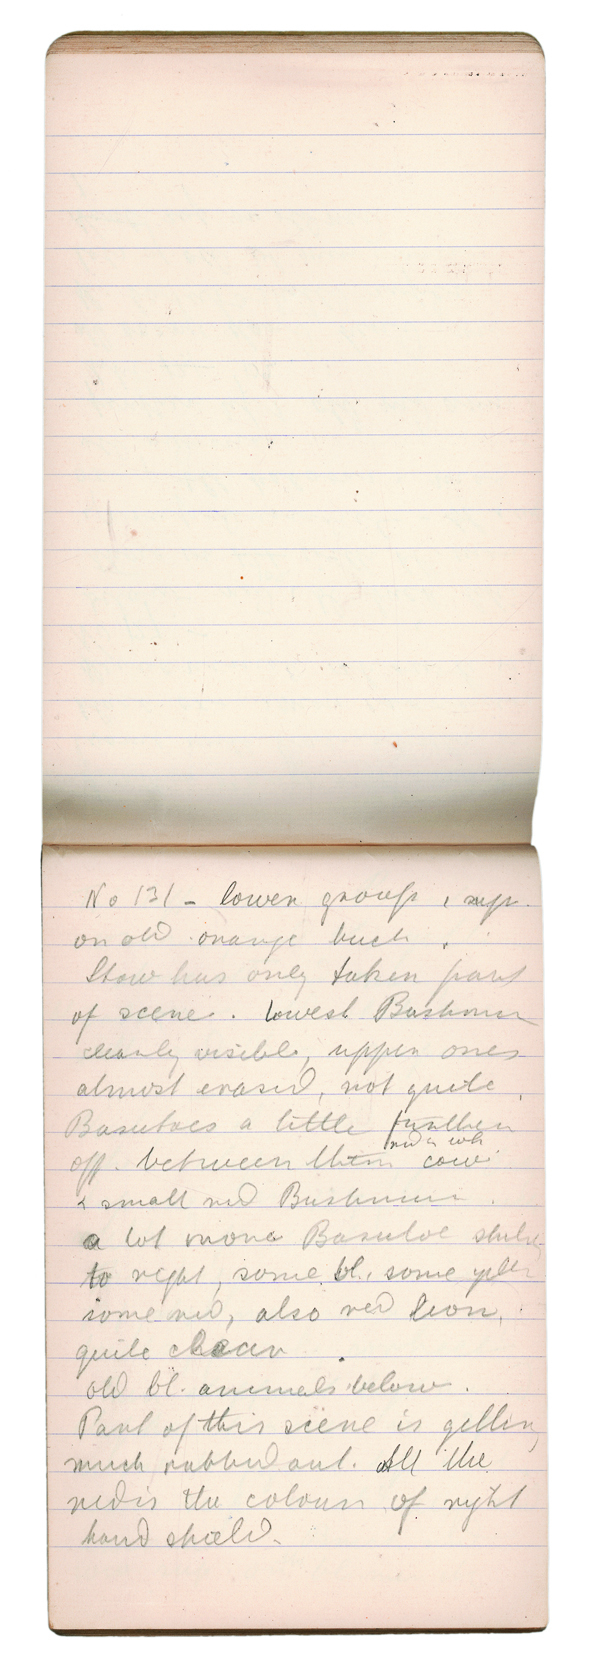 No 131 - lower group, sup.
on old orange buck.
Stow has only taken part
of scene. lowest Bushmen
clearly visible, upper ones
almost erased, not quite,
Basutoes a little further
off. between them red & wh. cow
& small red Bushmen.
a lot more Basutoe shields
to right, some bl., some yell
some red, also red lion,
quite clear
old bl. animals below.
Part of this scene is getting
much rubbed out. All the
red is the colour of right
hand shield.